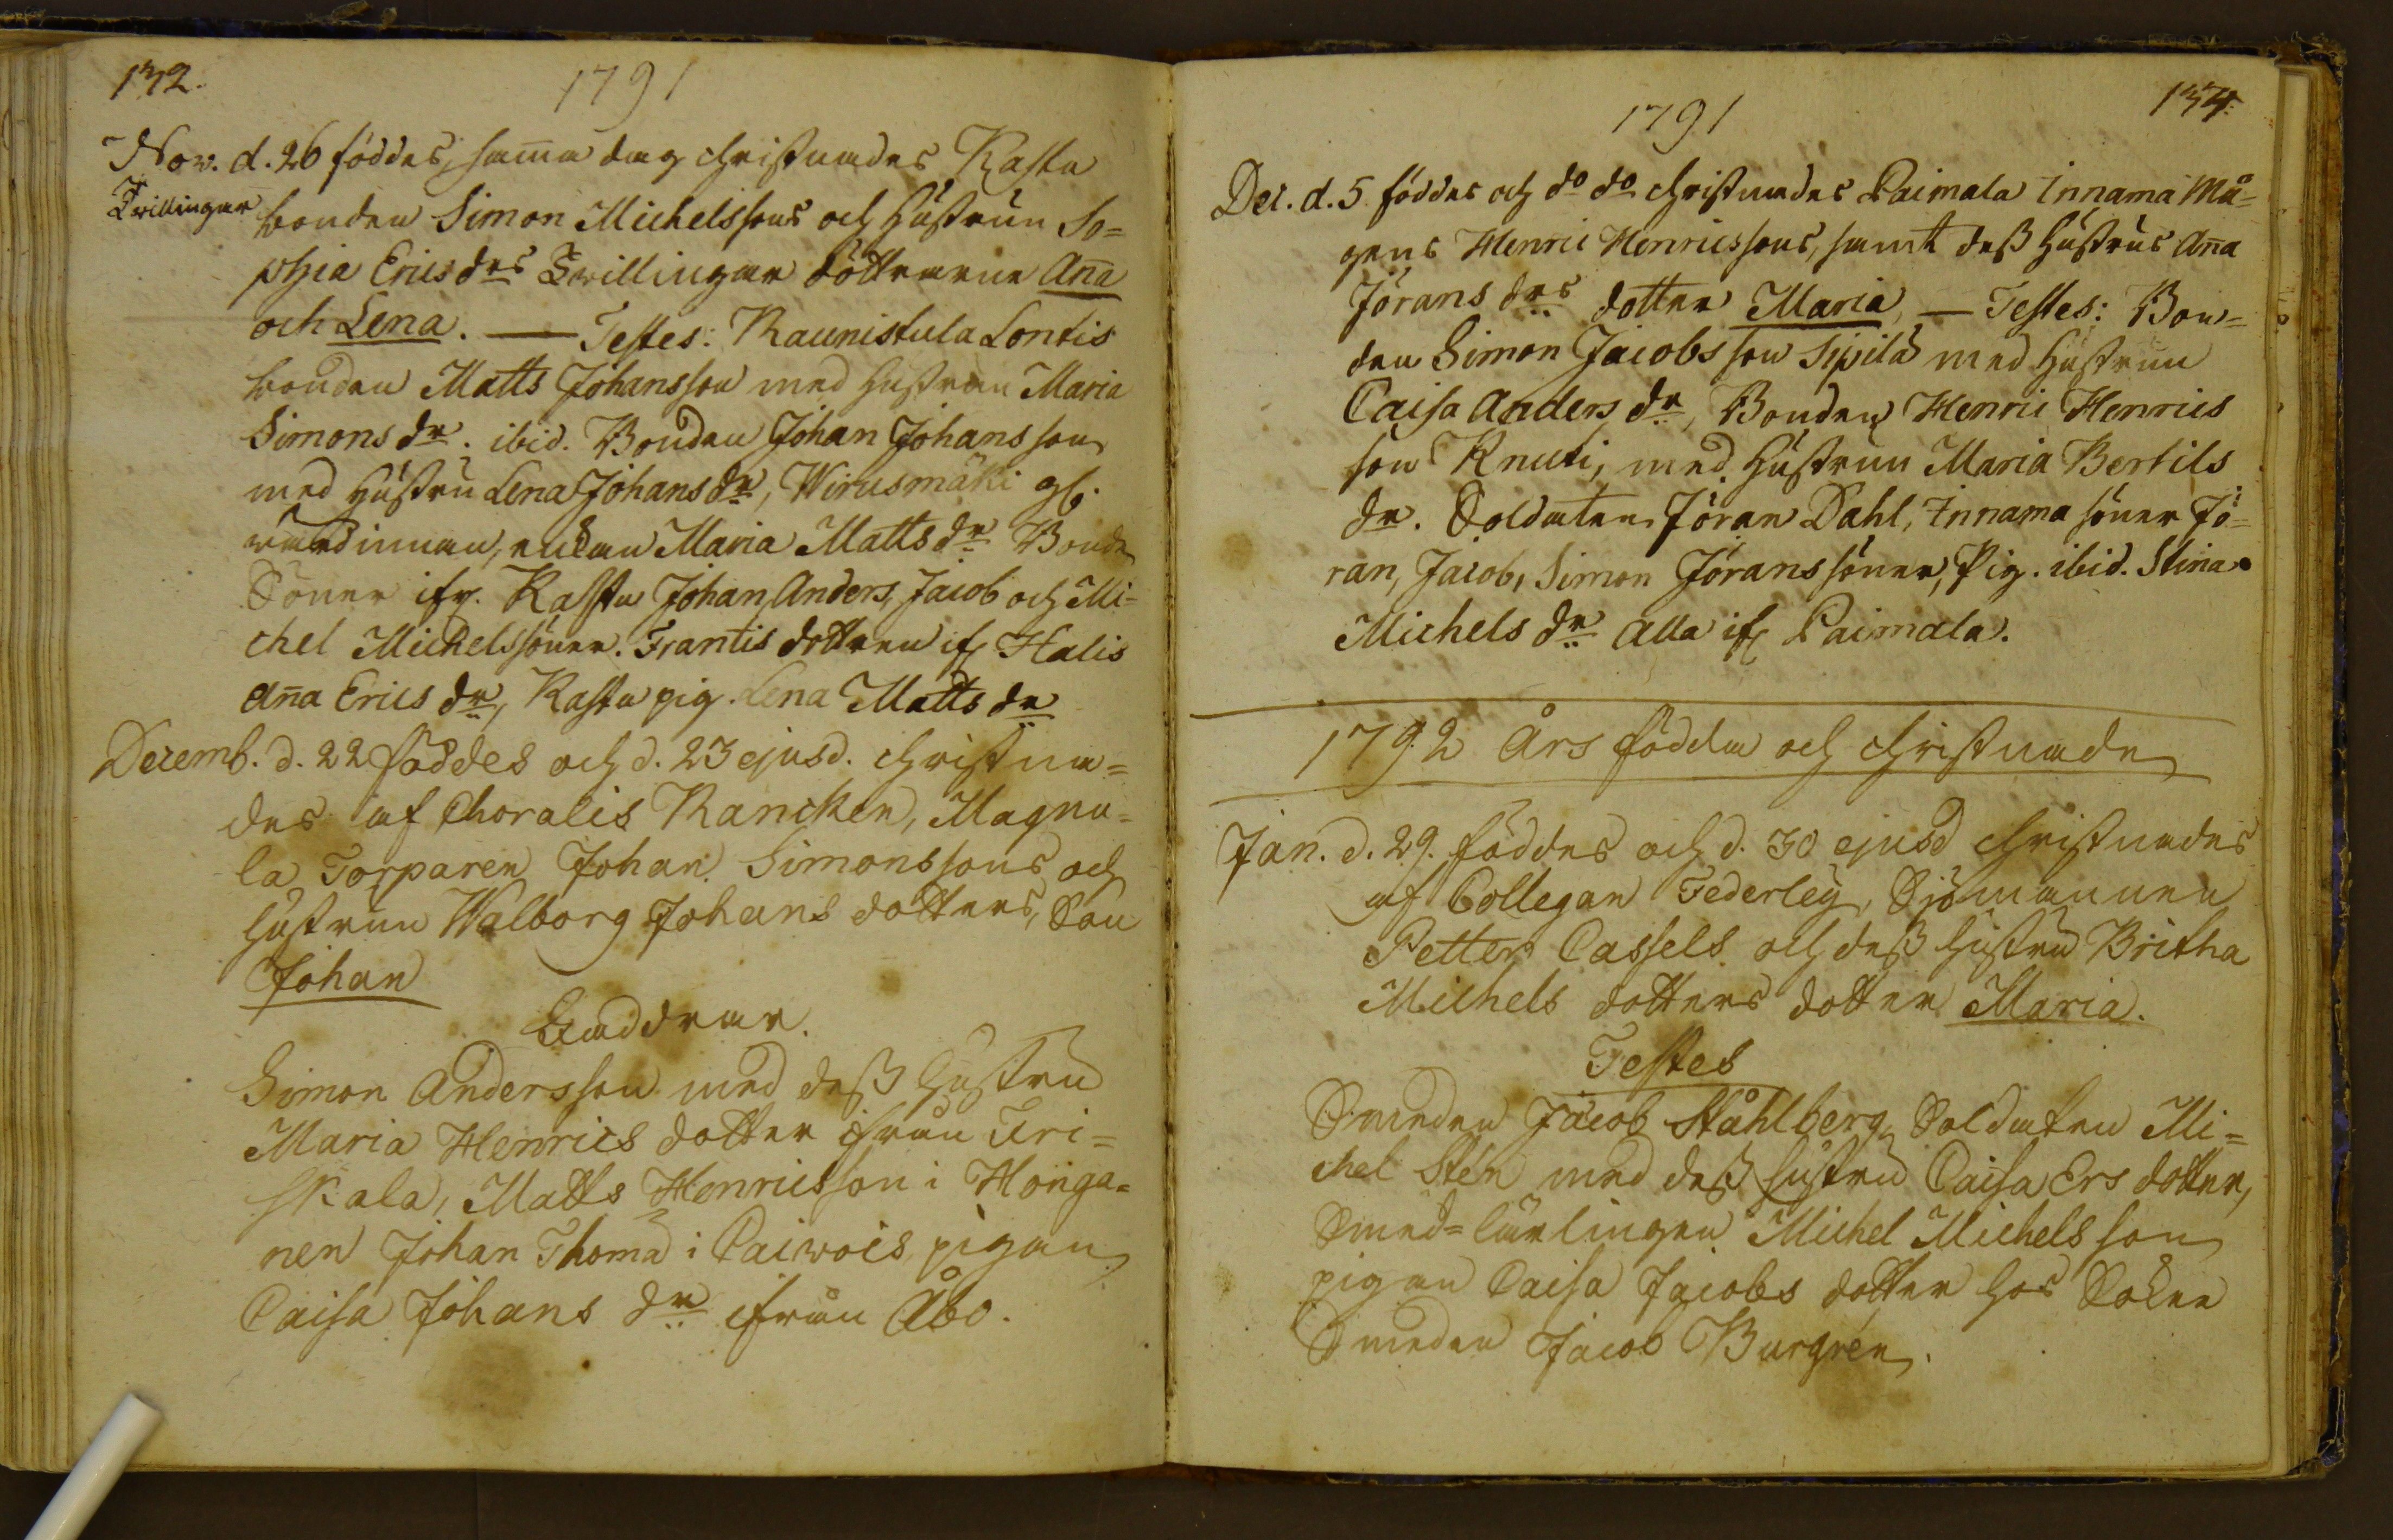 132.
1791
Nov. d. 26 föddes, sam̄a dag christnades Kastu
Twillingar
bonden Simon Michelssons och hustrun So=
phia Erics drs Twillingar döttrarne An̄a
och Lena. — Testes: Raunistula Lontis
bonden Matts Johansson med hustrun Maria
Simons dr. ibid. Bonden Johan Johansson
med hustru Lena Johans dr, Wirusmäki gl.
värdinnan, enkan Maria Matts dr Bonde
Söner ifr. Kastu Johan, Anders, Jacob och Mi=
chel Michelssöner. Frantis dottren ifr Halis
An̄a Erics dr, Kastu pig. Lena Matts dr
Decemb. d. 22 föddes och d. 23 ejusd. christna=
des af Choralis Rancken, Magnu=
la Torparen Johan Simonssons och
hustrun Walborg Johans dotters, Son
Johan
Faddrar.
Simon Andersson med dess hustru
Maria Henrics dotter ifrån Fri=
skala, Matts Henricsson i Honga=
nen Johan Thoma i Paiwois, pigan
Caisa Johans dr ifrån Åbo.
134.
1791
Dec. d. 5 föddes och do do christnades Paimala Innama Må=
gens Henric Henricssons, samt dess hustrus An̄a
Jörans drs dotter Maria, — Testes: Bon=
den Simon Jacobsson Sipilä med hustrun
Caisa Anders dr, Bonden Henric Henrics
son Knuti, med hustrun Maria Bertils
dr. Soldaten Jöran Dahl, Innama söner Jö=
ran, Jacob, Simon Jöranssöner, Pig. ibid. Stina
Michels dr alla ifr Paimala.
1792 Års födda och christnade
Jan. d. 29. föddes och d. 30 ejusd christnades
af Collegan Federley, Sjömannen
Petter Cassels och dess hustru Britha
Michels dotters dotter Maria.
Testes
Smeden Jacob Ståhlberg, Soldaten Mi=
chel Stén med dess hustru Caisa Ers dotter,
Smed=lärlingen Michel Michelsson
pigan Caisa Jacobs dotter hos Sokne
Smeden Jacob Burgrén.